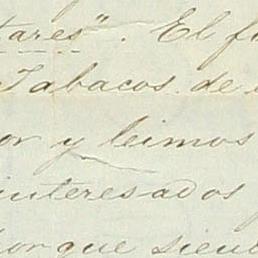 tares". El f
Tabacos de
or y leimos
interesados
porque sien